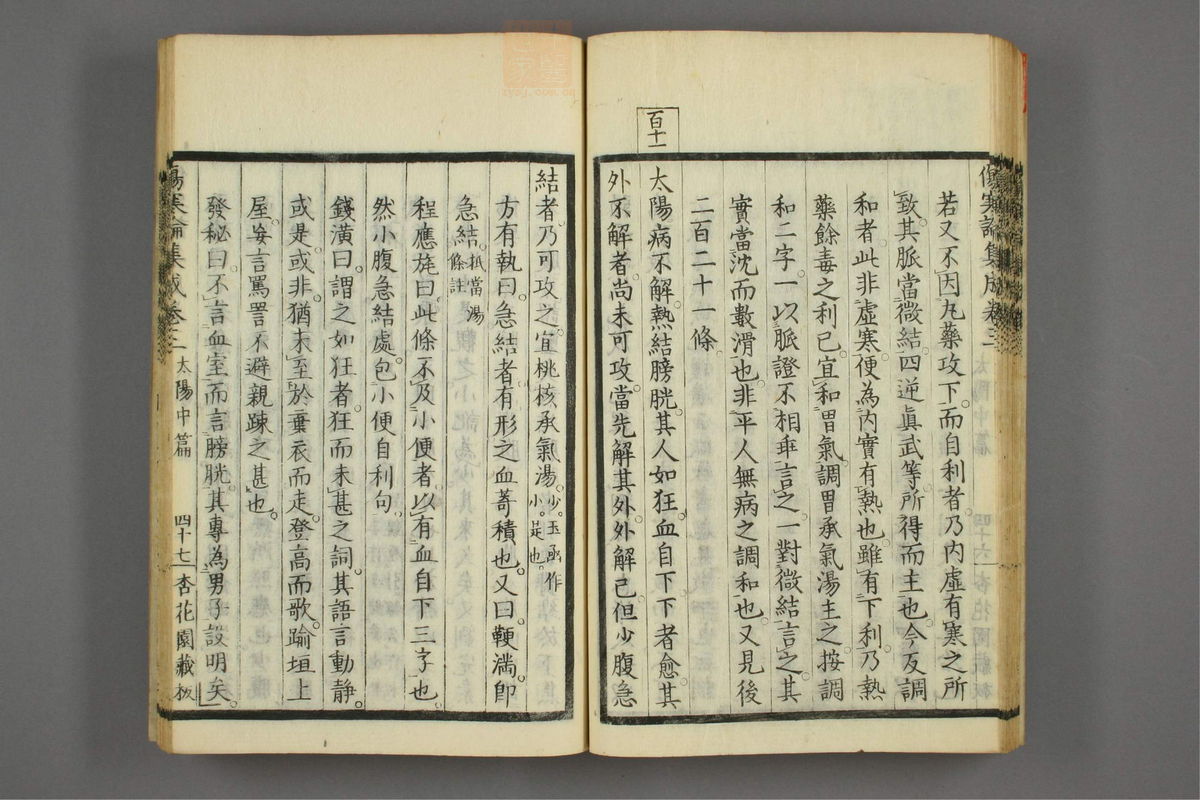 傷寒論集成卷三 太陽中篇 四十六 杏花園藏板
若又不因丸藥攻下而自利者乃内虛有寒之所
致其脈當微結四逆眞武等所得而主也今反調
和者此非虛寒便為内實有熱也雖有下利乃熱
藥餘毒之利已宜和胃氣調胃承氣湯主之按調
和二字一以脈證不相乖言之一對微結言之其
實當沈而數滑也非平人無病之調和也又見後
二百二十一條
百十一
太陽病不解熱結膀胱其人如狂血自下下者愈其
外不解者尚未可攻當先解其外外解已但少腹急
結者乃可攻之宜桃核承氣湯少玉函作小是也
方有執曰急結者有形之血蓄積也又曰鞕滿卽
急結抵當湯條註
程應旄曰此條不及小便者以有血自下三字也
然小腹急結處包小便自利句
錢潢曰謂之如狂者狂而未甚之詞其語言動靜
或是或非猶未至於棄衣而走登高而歌踰垣上
屋妄言罵詈不避親踈之甚也
發秘曰不言血室而言膀胱其專為男子設明矣
傷寒論集成卷三 太陽中篇 四十七 杏花園藏板